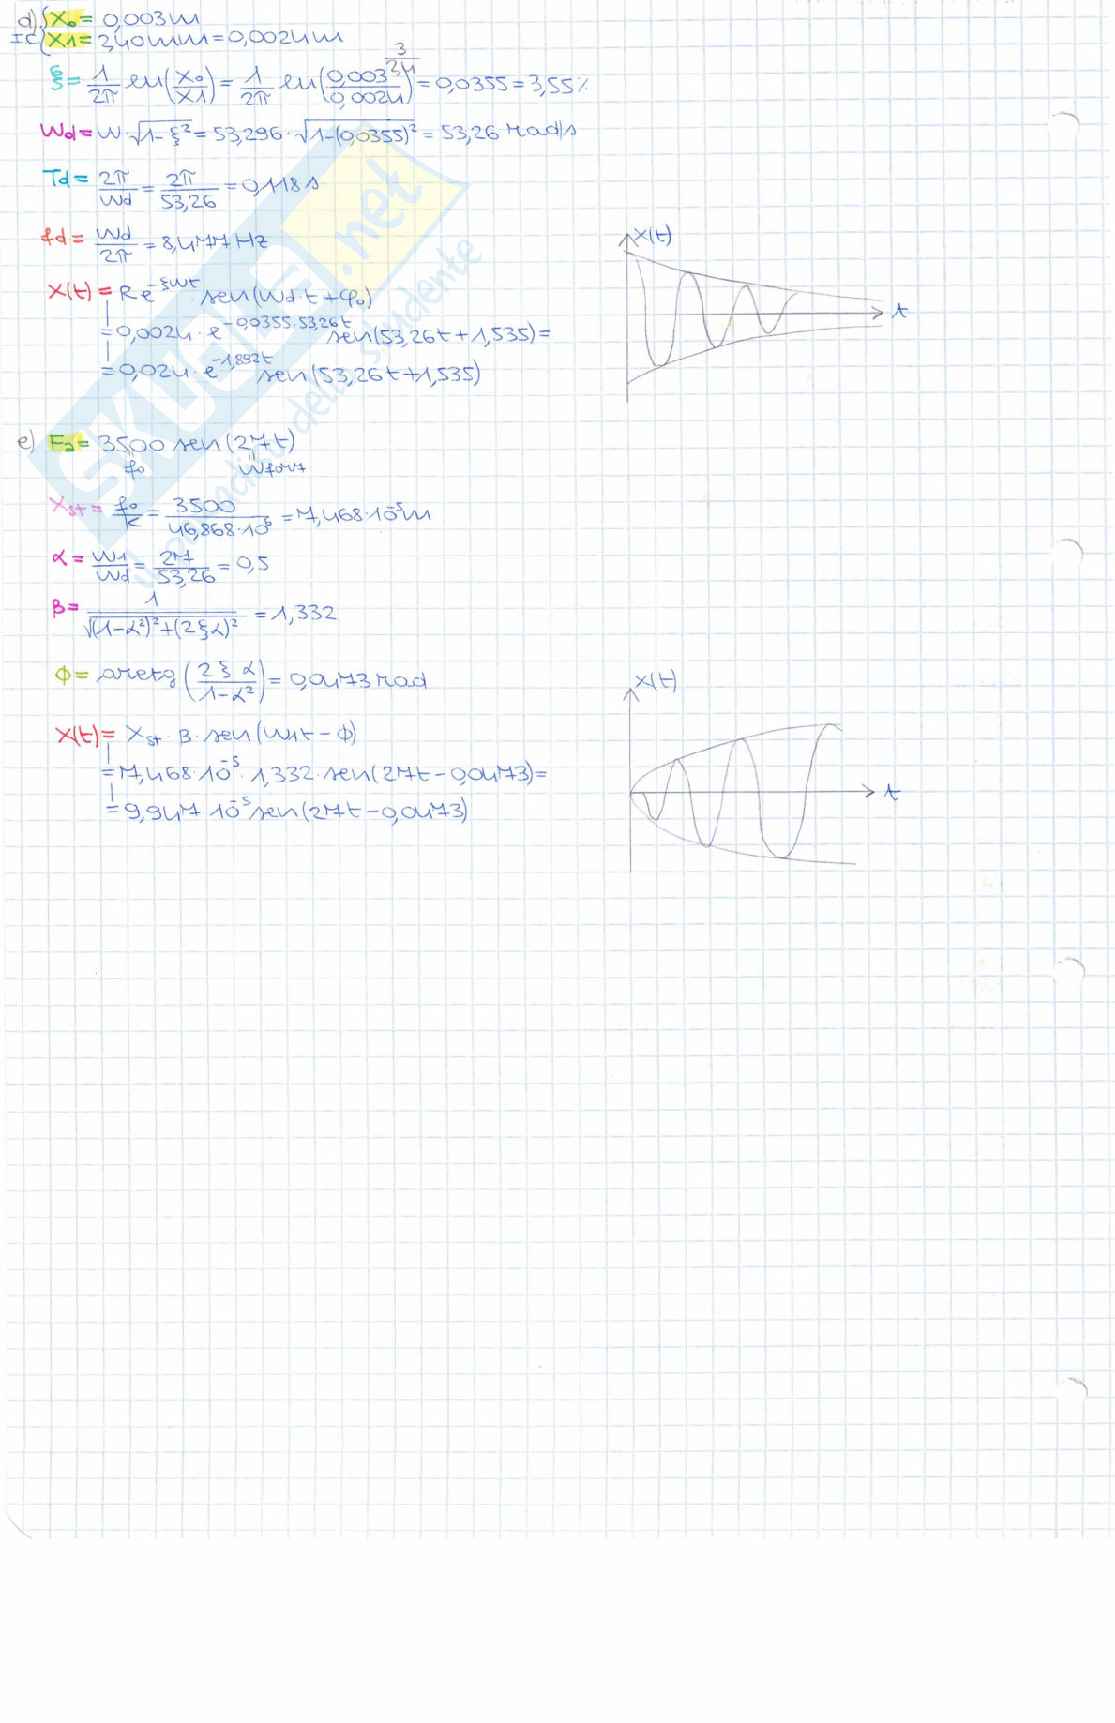 d) { X₀ = 0,003 m
IC { X1 = 2,40 mm = 0,0024 m
ξ = 1/2π ln(X₀/X1) = 1/2π ln(0,003/0,0024) = 0,0355 = 3,55 %
3
24
Wd = W · √1-ξ² = 53,296 · √1-(0,0355)² = 53,26 rad/s
Td = 2π/Wd = 2π/53,26 = 0,118 s
fd = Wd/2π = 8,477 Hz
X(t) = R e^-ξWt sen(Wd t + φ₀)
= 0,0024 · e^-0,0355·53,26t sen(53,26t + 1,535) =
= 0,024 · e^-1,892t sen(53,26t + 1,535)
X(t)
t
e) F₂ = 3500 sen(27t)
f₀ Wforz
Xst = f₀/K = 3500/46,868·10⁶ = 7,468·10⁻⁵ m
α = W1/Wd = 27/53,26 = 0,5
β = 1/√(1-α²)²+(2ξα)² = 1,332
Φ = arctg (2ξα/1-α²) = 0,0473 rad
X(t) = Xst · β · sen(W1t - Φ)
= 7,468·10⁻⁵ · 1,332 · sen(27t - 0,0473) =
= 9,947 10⁻⁵ sen(27t - 0,0473)
X(t)
t
SKUOLA.net